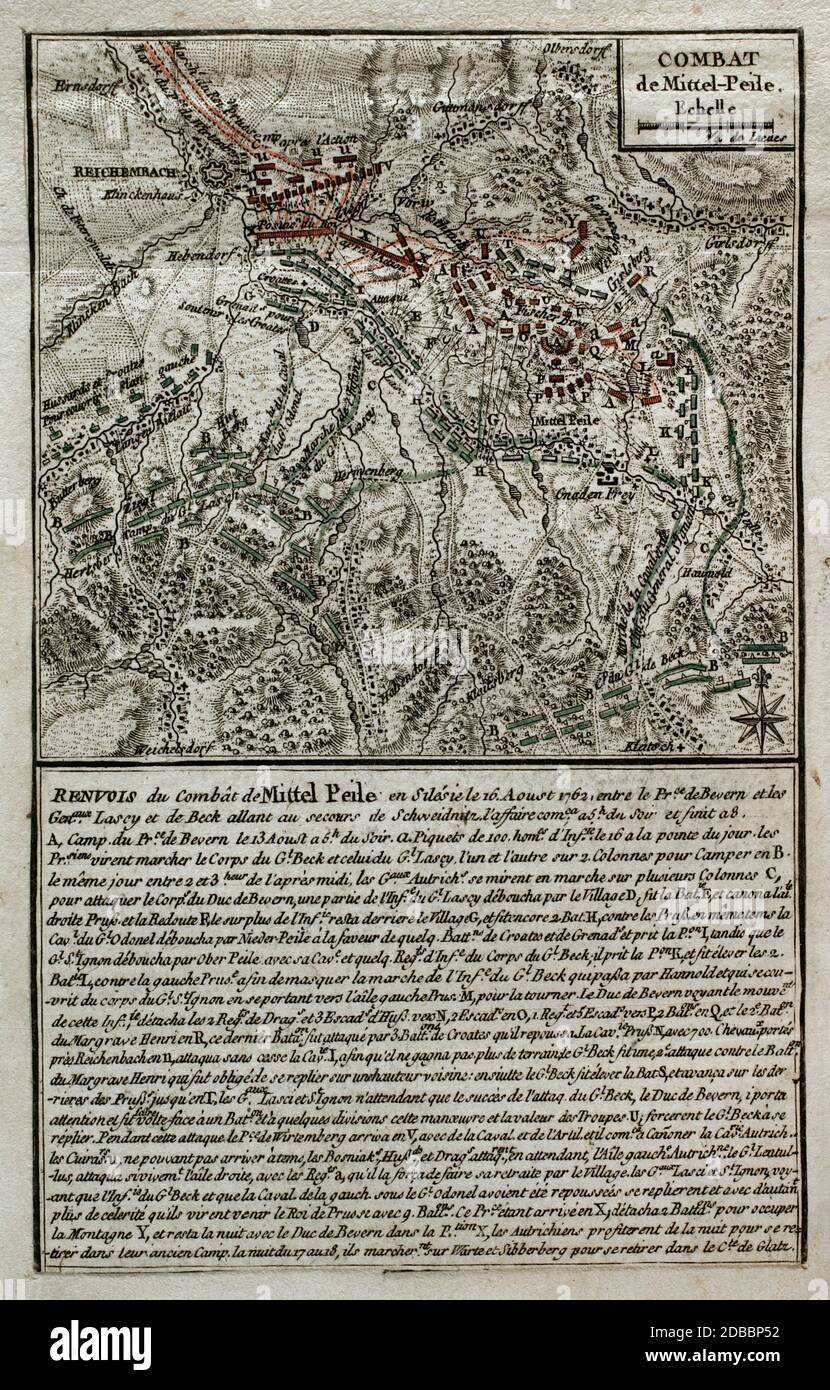 COMBAT
de Mittel-Peile.
Echelle
Olbersdorff
Ernsdorff
Guttmansdorff
Camp après l'Action
REICHEMBACH
Klinckenhaus
Girlsdorff
Hebendorf
Croates
Grenad.rs pour
Soutenir les Croates
Attaque
Klincken Bach
Hussards et Croates
gauche
Fischerb.
Girlsberg
Mittel Peile
Marche de l'Inf.ie
du G.l Lascy
Herrnenberg
Gnaden Frey
Butterberg
Camp du G.l Lasci
Hertsberg
Haunold
Marche de la Cavalerie
Habendorf
Kleitsberg
C.p du G.l de Beck
Weichelsdorf
Kleitsch +
RENVOIS du Combât de Mittel Peile en Silésie le 16. Aoust 1762, entre le Pr.ce de Bevern et les
Gen.aux Lascy et de Beck allant au secours de Schweidnitz, l'affaire com.ça a 5.h du Soir et finit a 8.
A, Camp du Pr.ce de Bevern le 13 Aoust a 6.h du Soir. a. Piquets de 100. hom.s d'Inf.ie le 16 a la pointe du jour. les
Pr.siens virent marcher le Corps du G.l Beck et celui du G.l Lascy, l'un et l'autre sur 2. Colonnes pour Camper en B.
le même jour entre 2 et 3 heur. de l'après midi, les G.aux Autrich.s se mirent en marche sur plusieurs Colonnes C,
pour attaquer le Corp. du Duc de Bevern, une partie de l'Inf.e du G.l Lascy déboucha par le Village D, fit la Bat.ie E, et canona l'ai.le
droite Pruss. et la Redoute F, le surplus de l'Inf.ie resta derriere le Village G, et fit encore 2. Bat. H, contre les Pruss. en meme tems la
Cav.e du G.l Odonel déboucha par Nieder-Peile à la faveur de quelq. Batt.ns de Croates et de Grenad.rs et prit la P.on I, tandis que le
G.l S.t Ignon déboucha par Ober Peile avec sa Cav.e et quelq. Reg.s d'Inf.e du Corps du G.l Beck, il prit la P.on K, et fit élever les 2.
Bat.ies L, contre la gauche Prus.e afin de masquer la marche de l'Inf.e du G.l Beck qui passa par Hannold et se cou-
vrit du corps du G.l S.t Ignon en se portant vers l'aîle gauche Prus. M, pour la tourner. Le Duc de Bevern voyant le mouve.nt
de cette Inf.ie détacha les 2 Reg.s de Drag.s et 3 Escad.s d'Huss. vers N, 2 Escad.s en O, 1. Reg.t et 5 Escad.s vers P, 2 Bat.ons en Q, et le 2.e Bat.on
du Margrave Henri en R, ce dernier Bata.on fut attaqué par 3 Bat.ons de Croates qu'il repoussa. La Cav.le Pruss. N, avec 700. Chevaux portés
près Reichenbach en n, attaqua sans cesse la Cav.e I, afin qu'elle ne gagna pas plus de terrain, le G.l Beck fit une 2.e attaque contre le Batt.on
du Margrave Henri qui fut obligé de se replier sur une hauteur voisine: ensuitte le G.l Beck fit élever la Bat. S, et avança sur les der-
rieres des Pruss. jusqu'en T, les G.aux Lasci et S.t Ignon n'attendant que le succès de l'attaq. du G.l Beck, le Duc de Bevern, i porta
attention et fit faire volte-face à un Bat.on et à quelques divisions cette manœuvre et la valeur des Troupes U, forcerent le G.l Beck a se
réplier. Pendant cette attaque le P.ce de Wirtemberg arriva en V, avec de la Caval. et de l'Artil. et il com.ça a Cañoner la Ca.le Autrich.
les Cuiras. u, ne pouvant pas arriver à tems, les Bosniak.s Huss.ds et Drag.s attaq.nt En attendant, l'Aîle gauch.e Autrich.ne le G.l Lentul-
lus, attaqua si vivem.t l'aîle droite, avec les Reg.s a, qu'il la força de faire sa retraite par le Village. les G.aux Lasci et S.t Ignon, voy-
ant que l'Inf.ie du G.l Beck et que la Caval. de la gauch. sous le G.l Odonel avoient eté repoussées se replierent et avec d'autan.t
plus de celerité qu'ils virent venir le Roi de Prusse avec 9. Batt.ns Ce Pr.ce étant arrivé en X, détacha 2 Batt.ns pour occuper
la Montagne Y, et resta la nuit avec le Duc de Bevern dans la P.tion X, les Autrichiens profiterent de la nuit pour se re-
tirer dans leur ancien Camp. la nuit du 17 au 18, ils marcher.nt sur Warte et Silberberg pour se retirer dans le C.té de Glatz.
alamy
alamy
Image ID: 2DBBP52
www.alamy.com